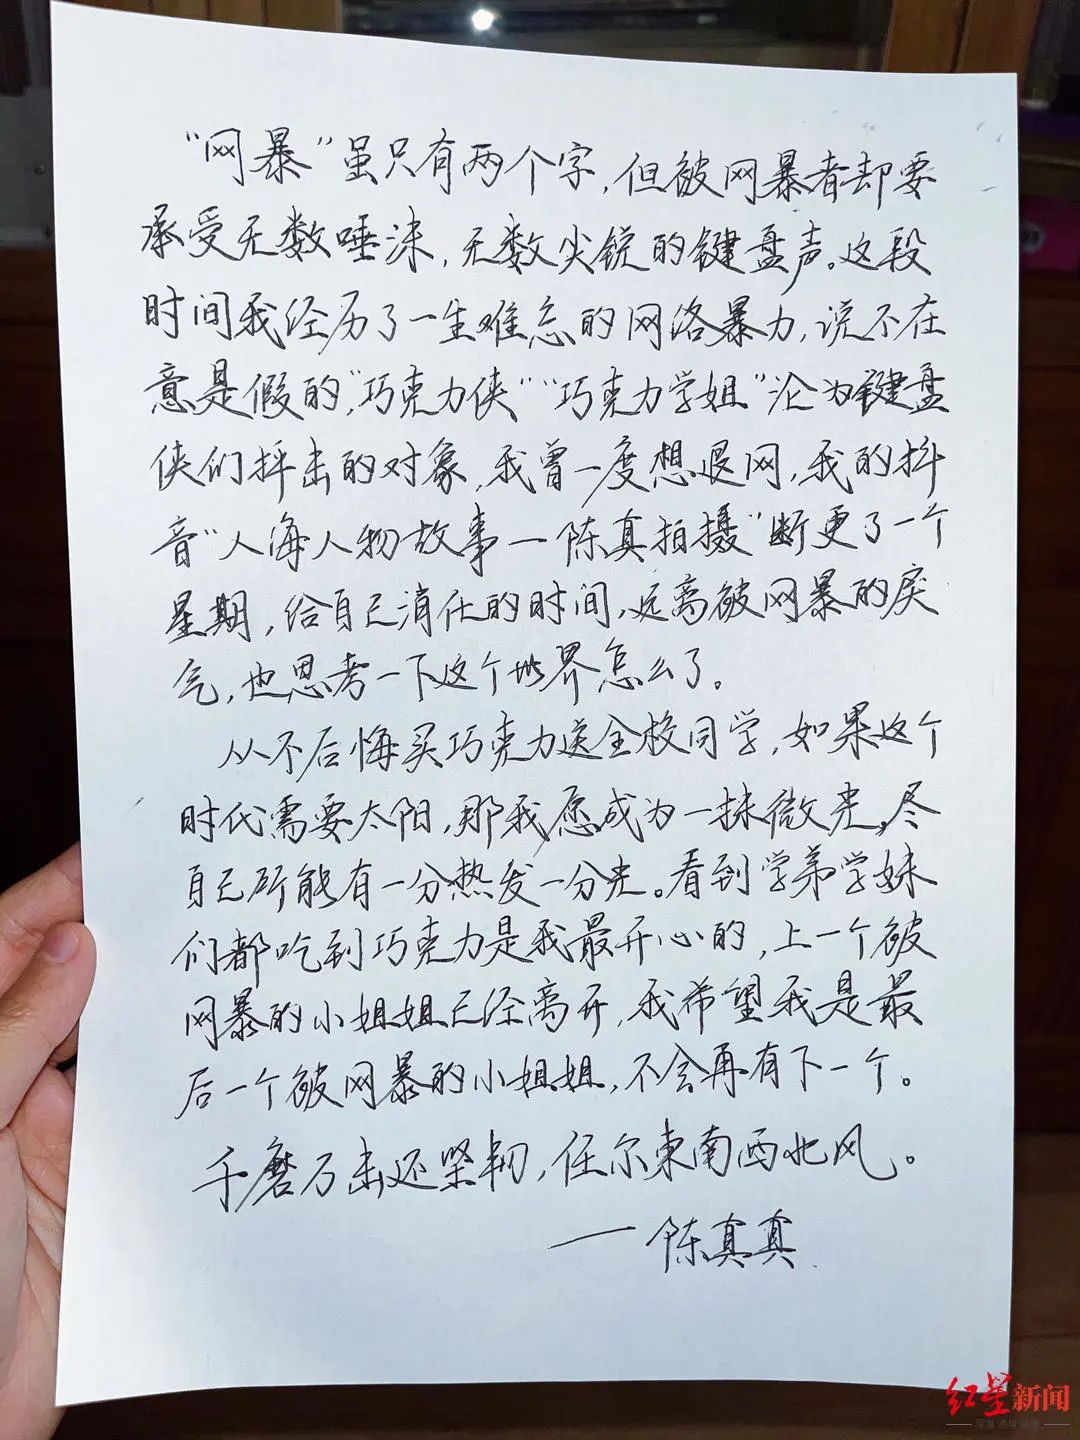 “网暴”虽只有两个字,但被网暴者却要
承受无数唾沫,无数尖锐的键盘声。这段
时间我经历了一生难忘的网络暴力,说不在
意是假的,“巧克力侠”“巧克力学姐”沦为键盘
侠们抨击的对象,我曾一度想退网,我的抖
音“人海人物故事—陈真拍摄”断更了一个
星期,给自己消化的时间,远离被网暴的戾
气,也思考一下这个世界怎么了。
从不后悔买巧克力送全校同学,如果这个
时代需要太阳,那我愿成为一抹微光,尽
自己所能有一分热发一分光。看到学弟学妹
们都吃到巧克力是我最开心的,上一个被
网暴的小姐姐已经离开,我希望我是最
后一个被网暴的小姐姐,不会再有下一个。
千磨万击还坚韧,任尔東南西北风。
——陈真真
红星新闻